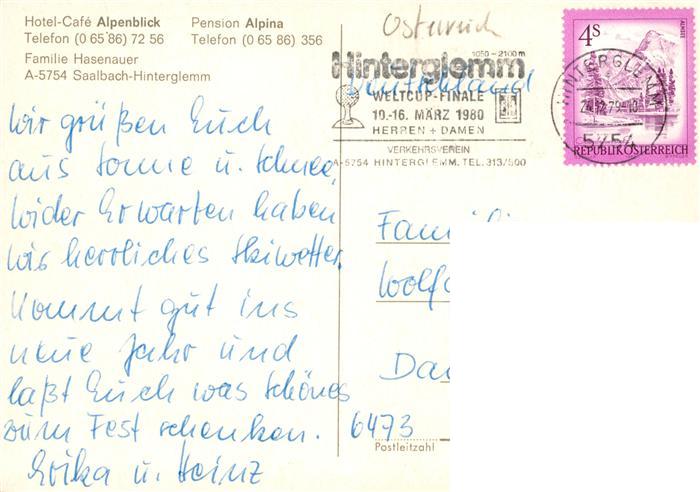 Hotel-Café Alpenblick Pension Alpina
Telefon (0 65 86) 72 56 Telefon (0 65 86) 356
Familie Hasenauer
A-5754 Saalbach-Hinterglemm
Wir grüßen Euch
aus Sonne u. Schnee,
Wider Erwarten haben
wir herrliches Skiwetter.
Kommt gut ins
neue Jahr und
laßt Euch was Schönes
zum Fest schenken.
Erika u. Heinz
Österreich
1050-2100 m
Hinterglemm
Deutschland
WELTCUP-FINALE
10.-16. MÄRZ 1980
HERREN + DAMEN
VERKEHRSVEREIN
A-5754 HINTERGLEMM, TEL. 313/500
4S
ALMSEE
HINTERGLEMM
5754
REPUBLIK ÖSTERREICH
Famili
Wolfg
Da
6473
Postleitzahl